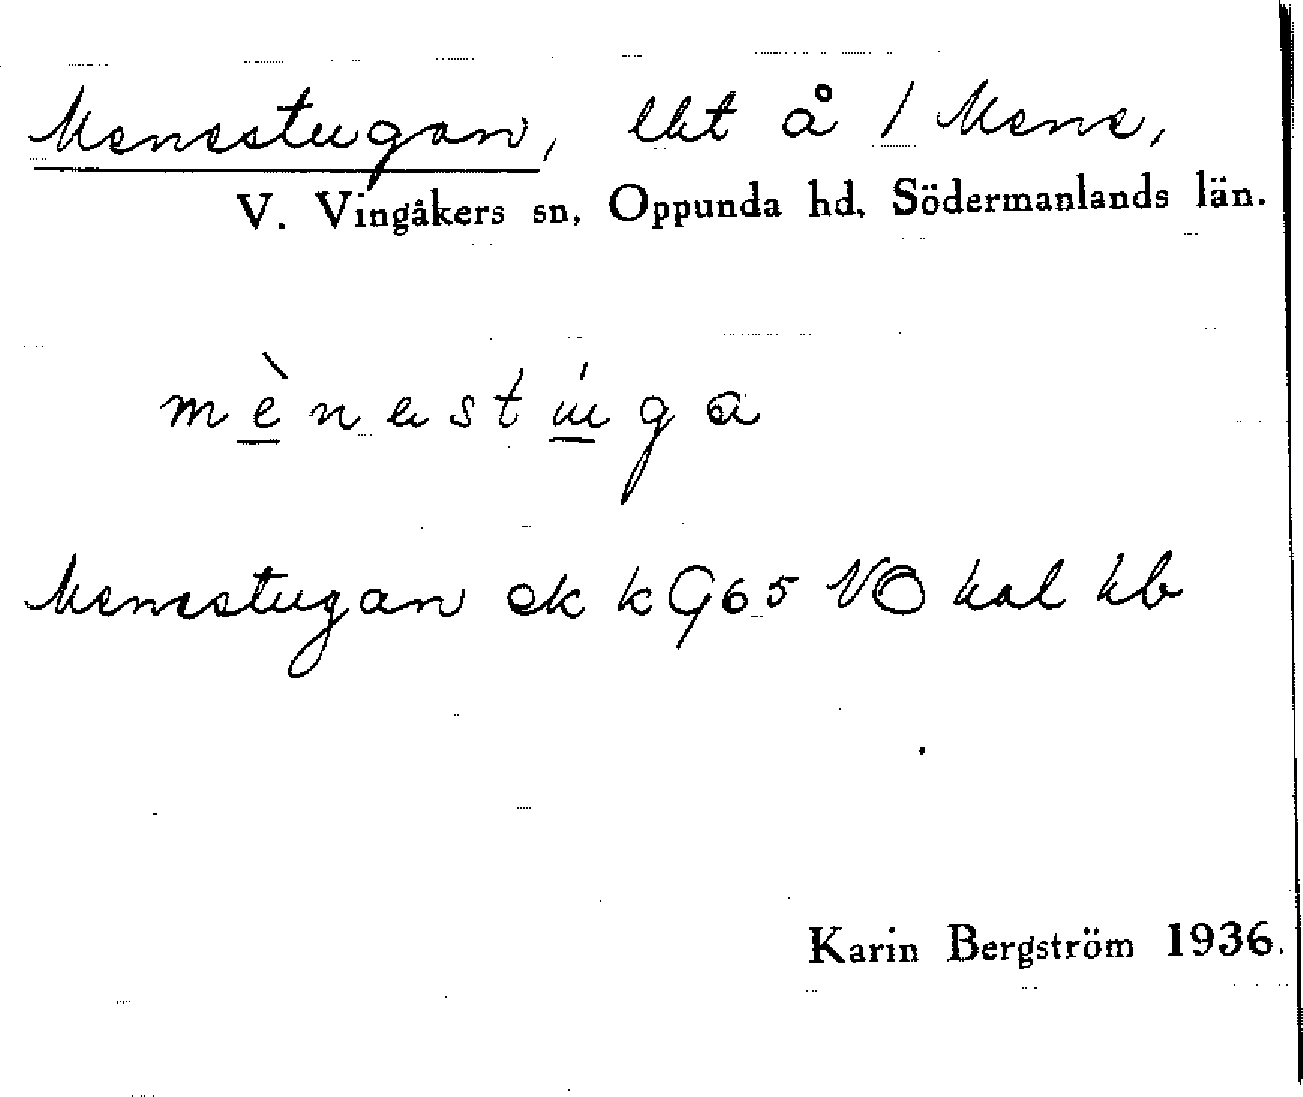 Menestugan, lht å / Mene,
V. Vingåkers sn, Oppunda hd, Södermanlands län.
mènastúga
Menestugan ek kG65 VO hal hb
Karin Bergström 1936.